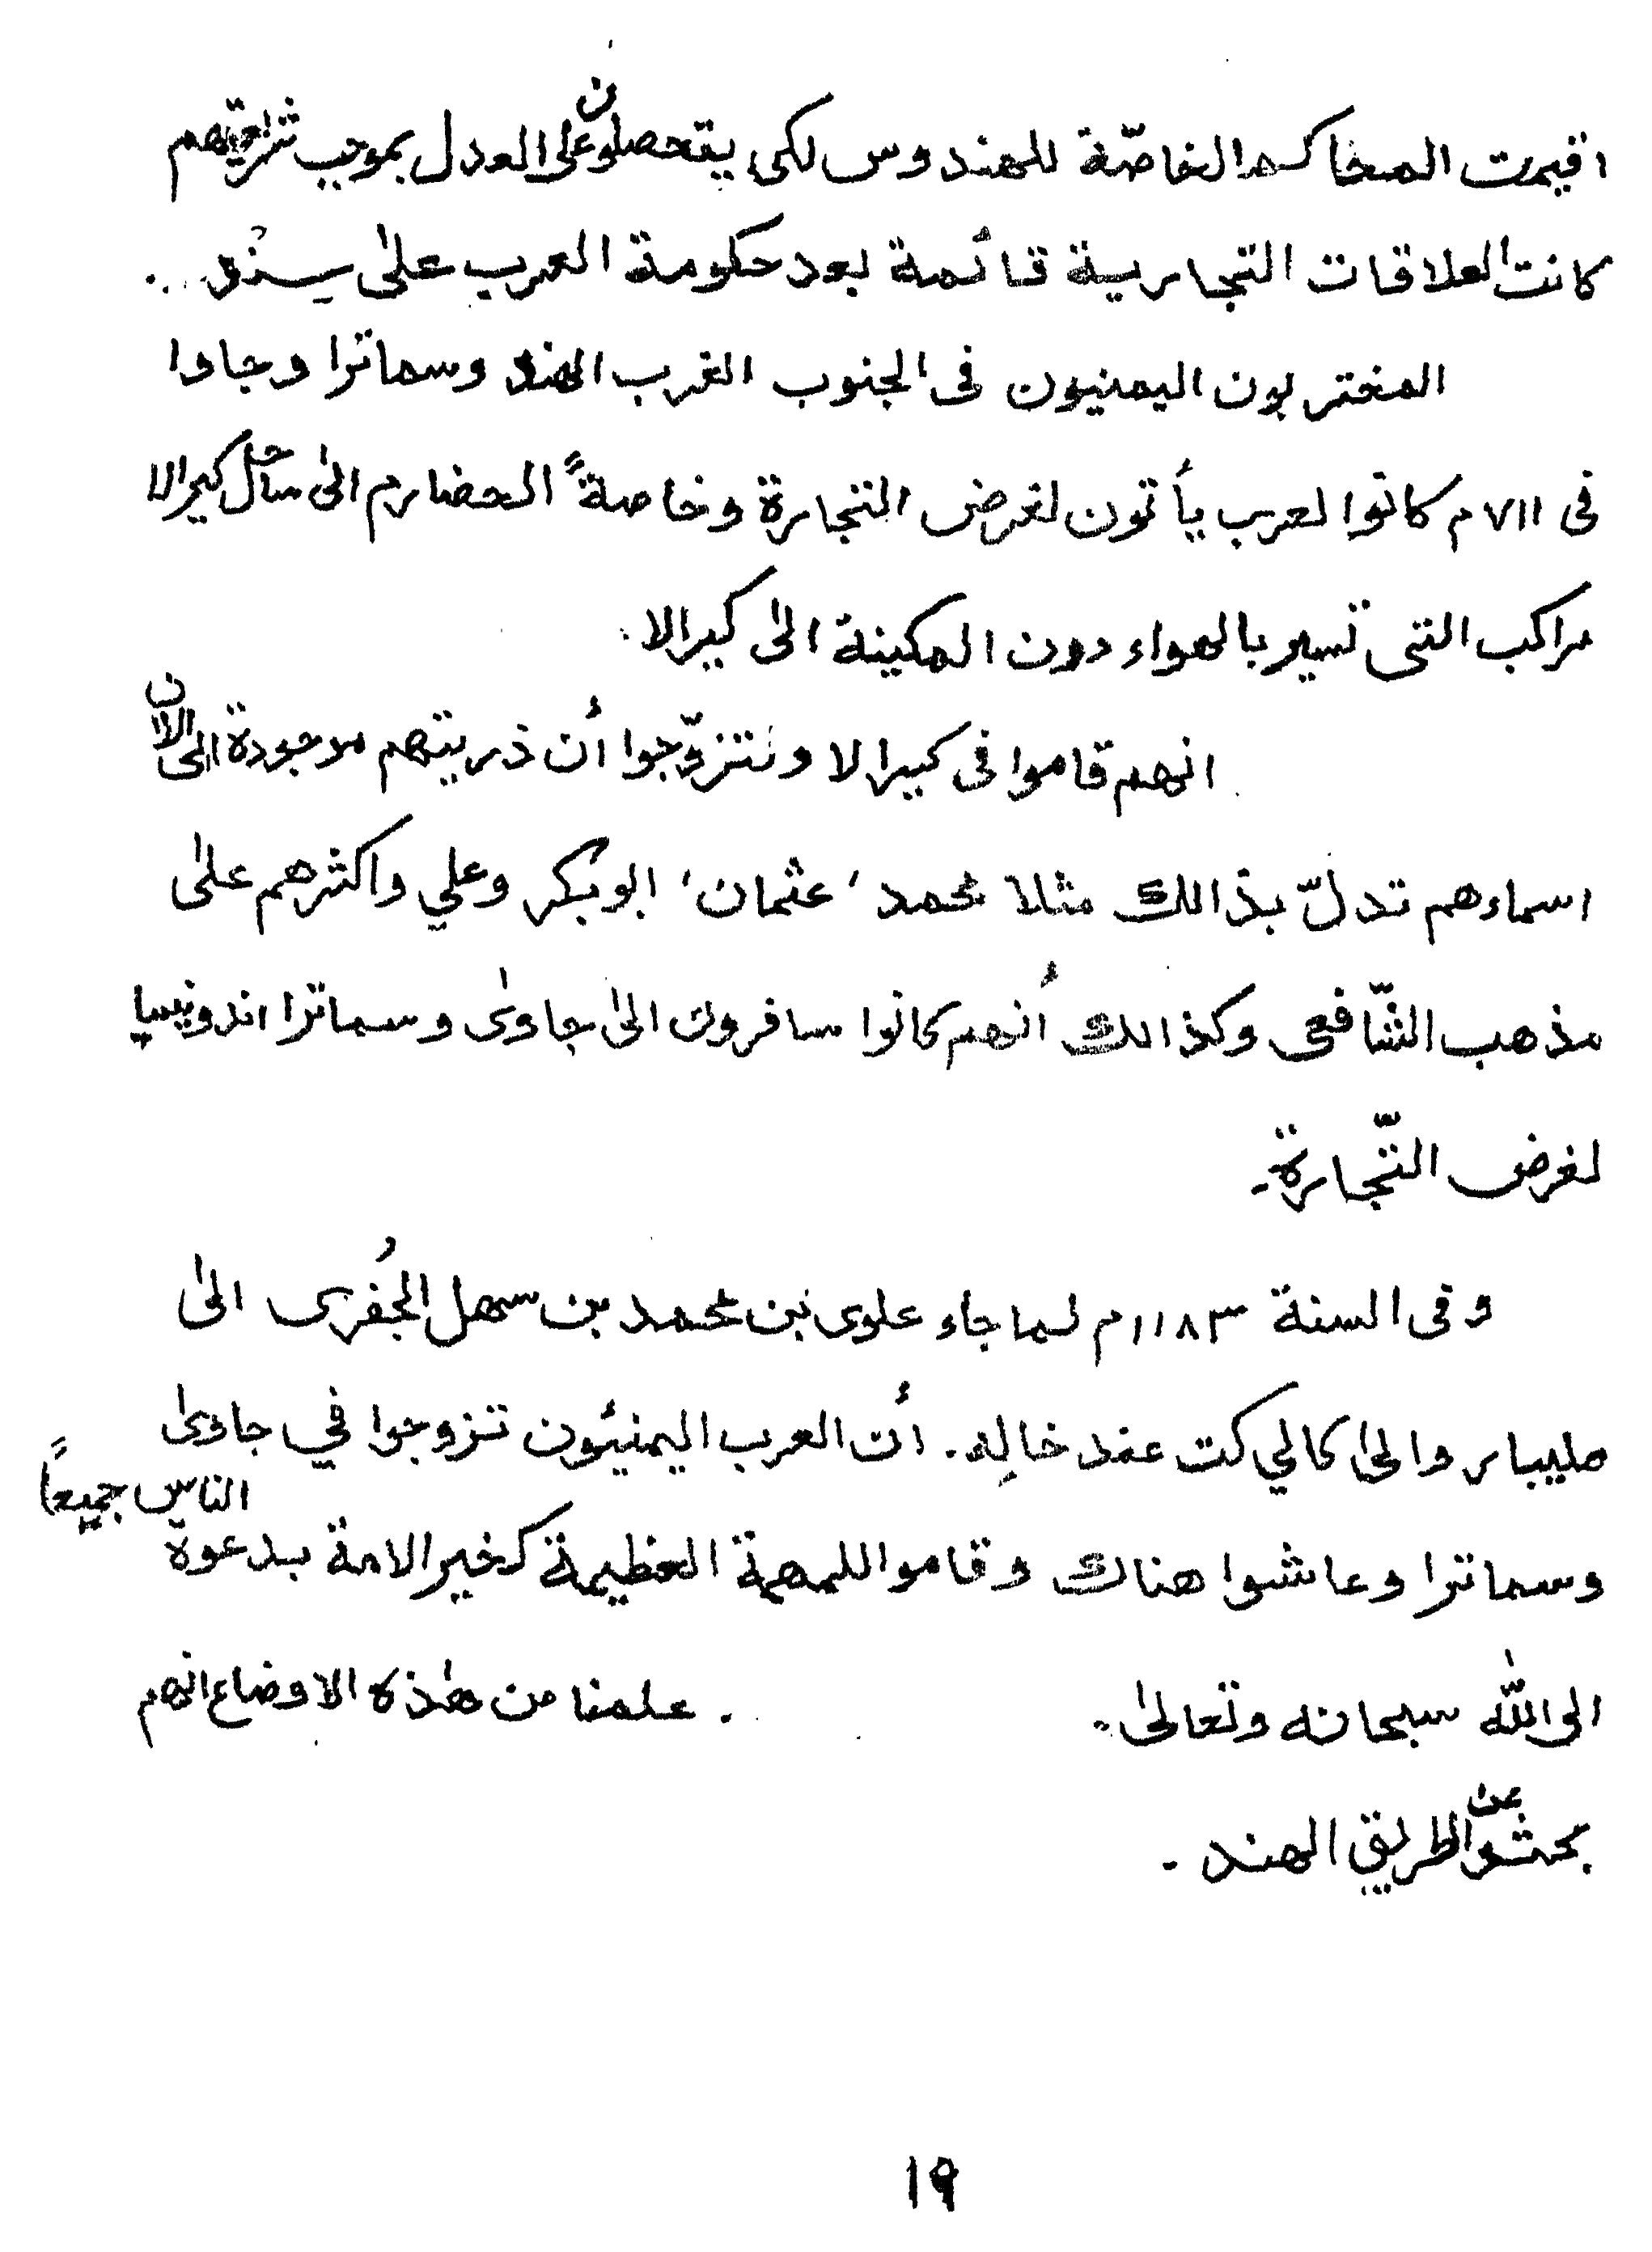 اقيمت المحاكم الخاصّة للهندوس لكى يتحصلون على العدل بموجب شراعيتهم
كانت العلاقات التجارية قائمة بعد حكومة العرب علىٰ سند.
المغتربون اليمنيون فى الجنوب الغرب الهند وسماترا وجاوا
فى ٧١١م كانوا لعرب يأتون لغرض التجارة وخاصةً الحضارم الىٰ ساحل كيرالا
مراكب التى تسير بالهواء دون المكينة الىٰ كيرالا.
انهم قاموا فى كيرالا وتتزوّجوا أن ذريتهم موجودة الى الان
اسماءهم تدلّ بذالك مثلا محمد، عثمان، ابوبكر وعلي واكثرهم علىٰ
مذهب الشّافعى وكذالك أنهم كانوا سافرون الىٰ جاوىٰ وسماترا اندونيسيا
لغرض التّجارة۔
وفى السنة ١١٨٣م لما جاء علوى بن محمد بن سهل الجُفرى الىٰ
مليبار والىٰ كالي كت عند خالِه. أن العرب اليمنيّون تزوجوا في جاوىٰ
وسماترا وعاشوا هناك وقاموا للمهمة العظيمة كخير الامة بدعوة الناس جميعاً
الى اللّٰه سبحانه وتعالىٰ. علمنا من هٰذه الاوضاع انهم
بحثوا عن الطريق الهند.
١٩